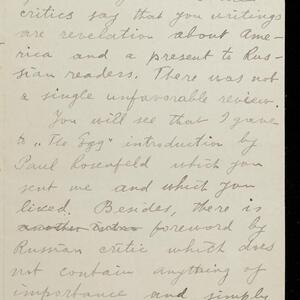 critics say that you writings
are revelation about Ame-
rica and a present to Rus-
sian readers. There was not
a single unfavorable review.
You will see that I gave
to „The Egg" introduction by
Paul Rosenfeld which you
sent me and which you
liked. Besides, there is
another foreword by
Russian critic which does
not contain anything of
importance and simply